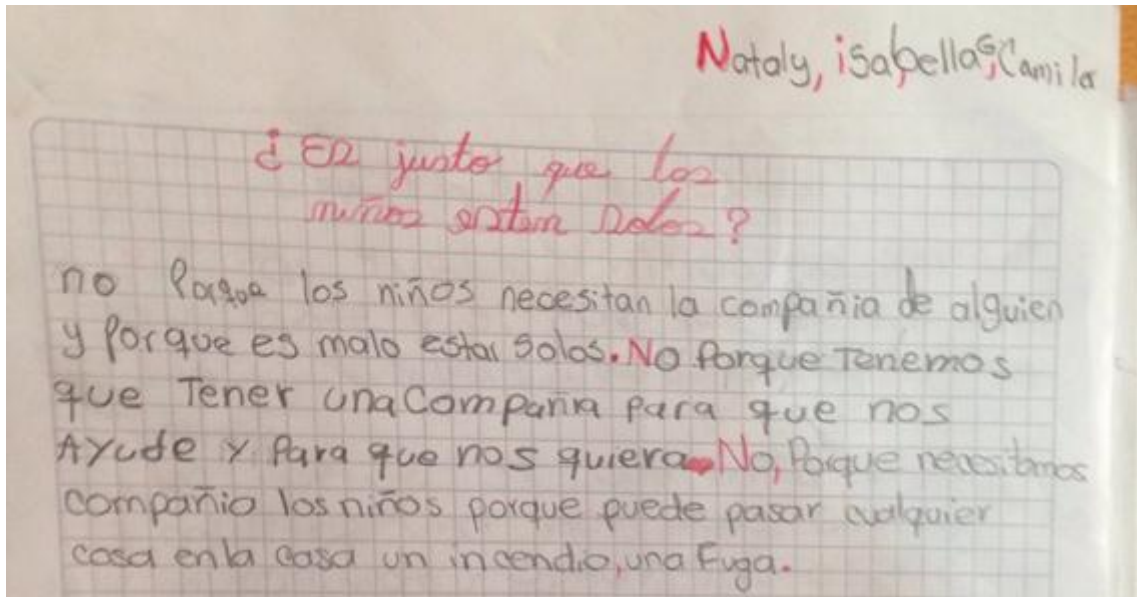 Nataly, isabella, Camila
¿Es justo que los
niños esten solos?
no Porque los niños necesitan la compañia de alguien
y Porque es malo estar solos. No Porque Tenemos
que Tener una Compañia para que nos
AYude y Para que nos quiera. No, Porque necesitamos
compañio los niños porque puede pasar cualquier
cosa en la casa un incendio, una Fuga.